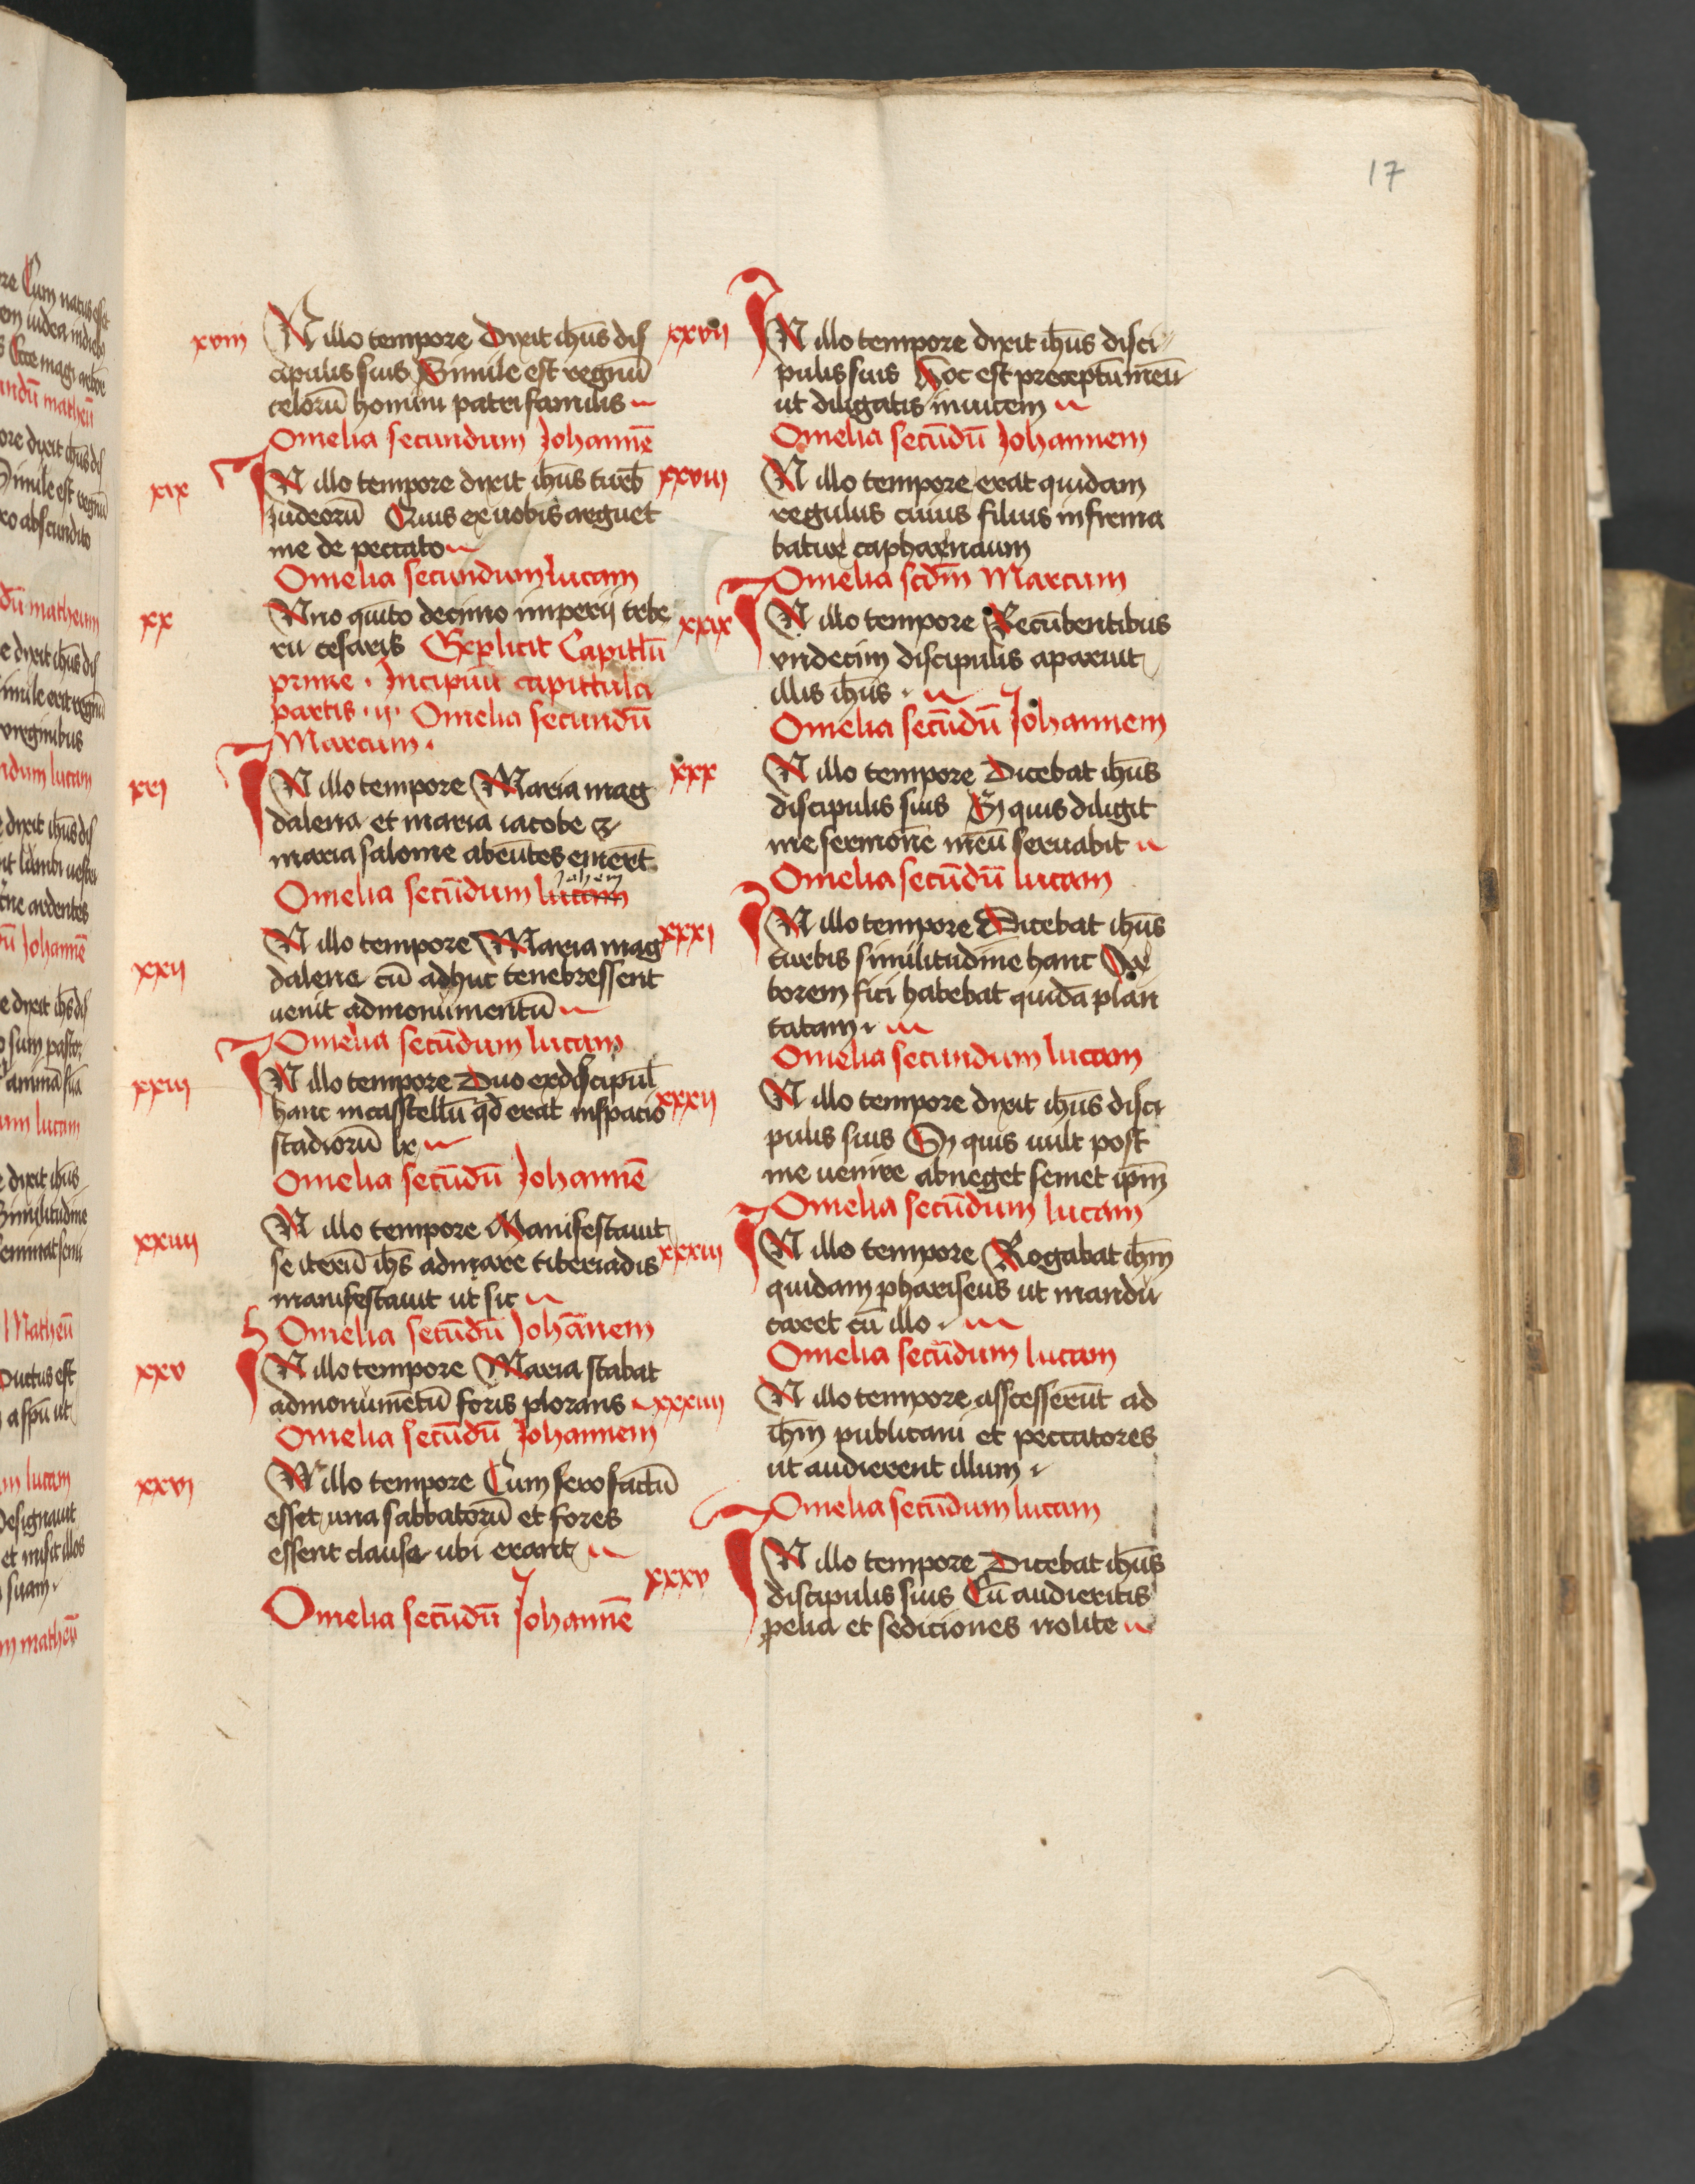 17
xviii IN illo tempore Dixit ihūs dis
cipulis suis Simile est regnū
celorū homini patrifamilis
Omelia secundum Johannē
xix IN illo tempore dixit ihūs turb
iudeorū Quis ex uobis arguet
me de peccato
Omelia secundum lucam
xx ANno quīto decimo imperij tebe
rii cesaris Explicit Capitlū
prime · Incipiūt capittula
partis · ij · Omelia secundū
Marcum ·
xxi IN illo tempore Maria mag
dalena et maria iacobe &
maria salome abeūtes emerūt
Johem
Omelia secūdum lucam
xxii IN illo tempore Maria mag
dalene cū adhuc tenebressent
uenit admonumentū
Omelia secūdum lucam
xxiii IN illo tempore Duo exdiscipul
hanc incasstellū qd erat inspacio
stadiorū lx
Omelia secūdū Johannē
xxiiii IN illo tempore Manifestauit
se iterū ihs admare tiberiadis
manifestauit ut sic
Omelia secūdū Johānem
xxv IN illo tempore Maria stabat
admonumētū foris plorans
Omelia secūdū Johannem
xxvi IN illo tempore Cum sero factū
esset una sabbatorū et fores
essent clause ubi erant
Omelia secūdū Johannē
xxvii IN illo tempore dixit ihūs disci
pulis suis Hoc est preceptum meū
ut diligatis inuicem
Omelia secūdū Johannem
xxviii IN illo tempore erat quidam
regulus cuius filius infirma
batur capharnaum
Omelia scdm Marcum
xxix IN illo tempore Recūbentibus
vndecim discipulis aparuit
illis ihūs ·
Omelia secūdū Johannem
xxx IN illo tempore Dicebat ihūs
discipulis suis Si quis diligit
me sermonē meū seruabit
Omelia secūdū lucam
xxxi IN illo tempore Dicebat ihūs
turbis similitudine hanc Ar
borem fici habebat quidā plan
tatam ·
Omelia secundum lucam
xxxii IN illo tempore dixit ihūs disci
pulis suis Si quis uult post
me uenire abneget semet ipm
Omelia secūdum lucam
xxxiii IN illo tempore Rogabat ihm
quidam phariseus ut mandu
caret cū illo ·
Omelia secūdum lucam
xxxiiii IN illo tempore asscesserūt ad
ihm publicani et peccatores
ut audierent illum ·
Omelia secūdum lucam
xxxv IN illo tempore Dicebat ihūs
discipulis suis Cū audieritis
pelia et sediciones nolite